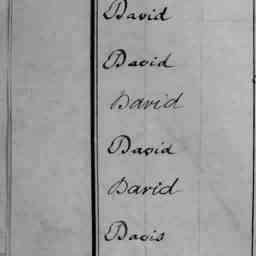 David
David
David
David
David
Davis